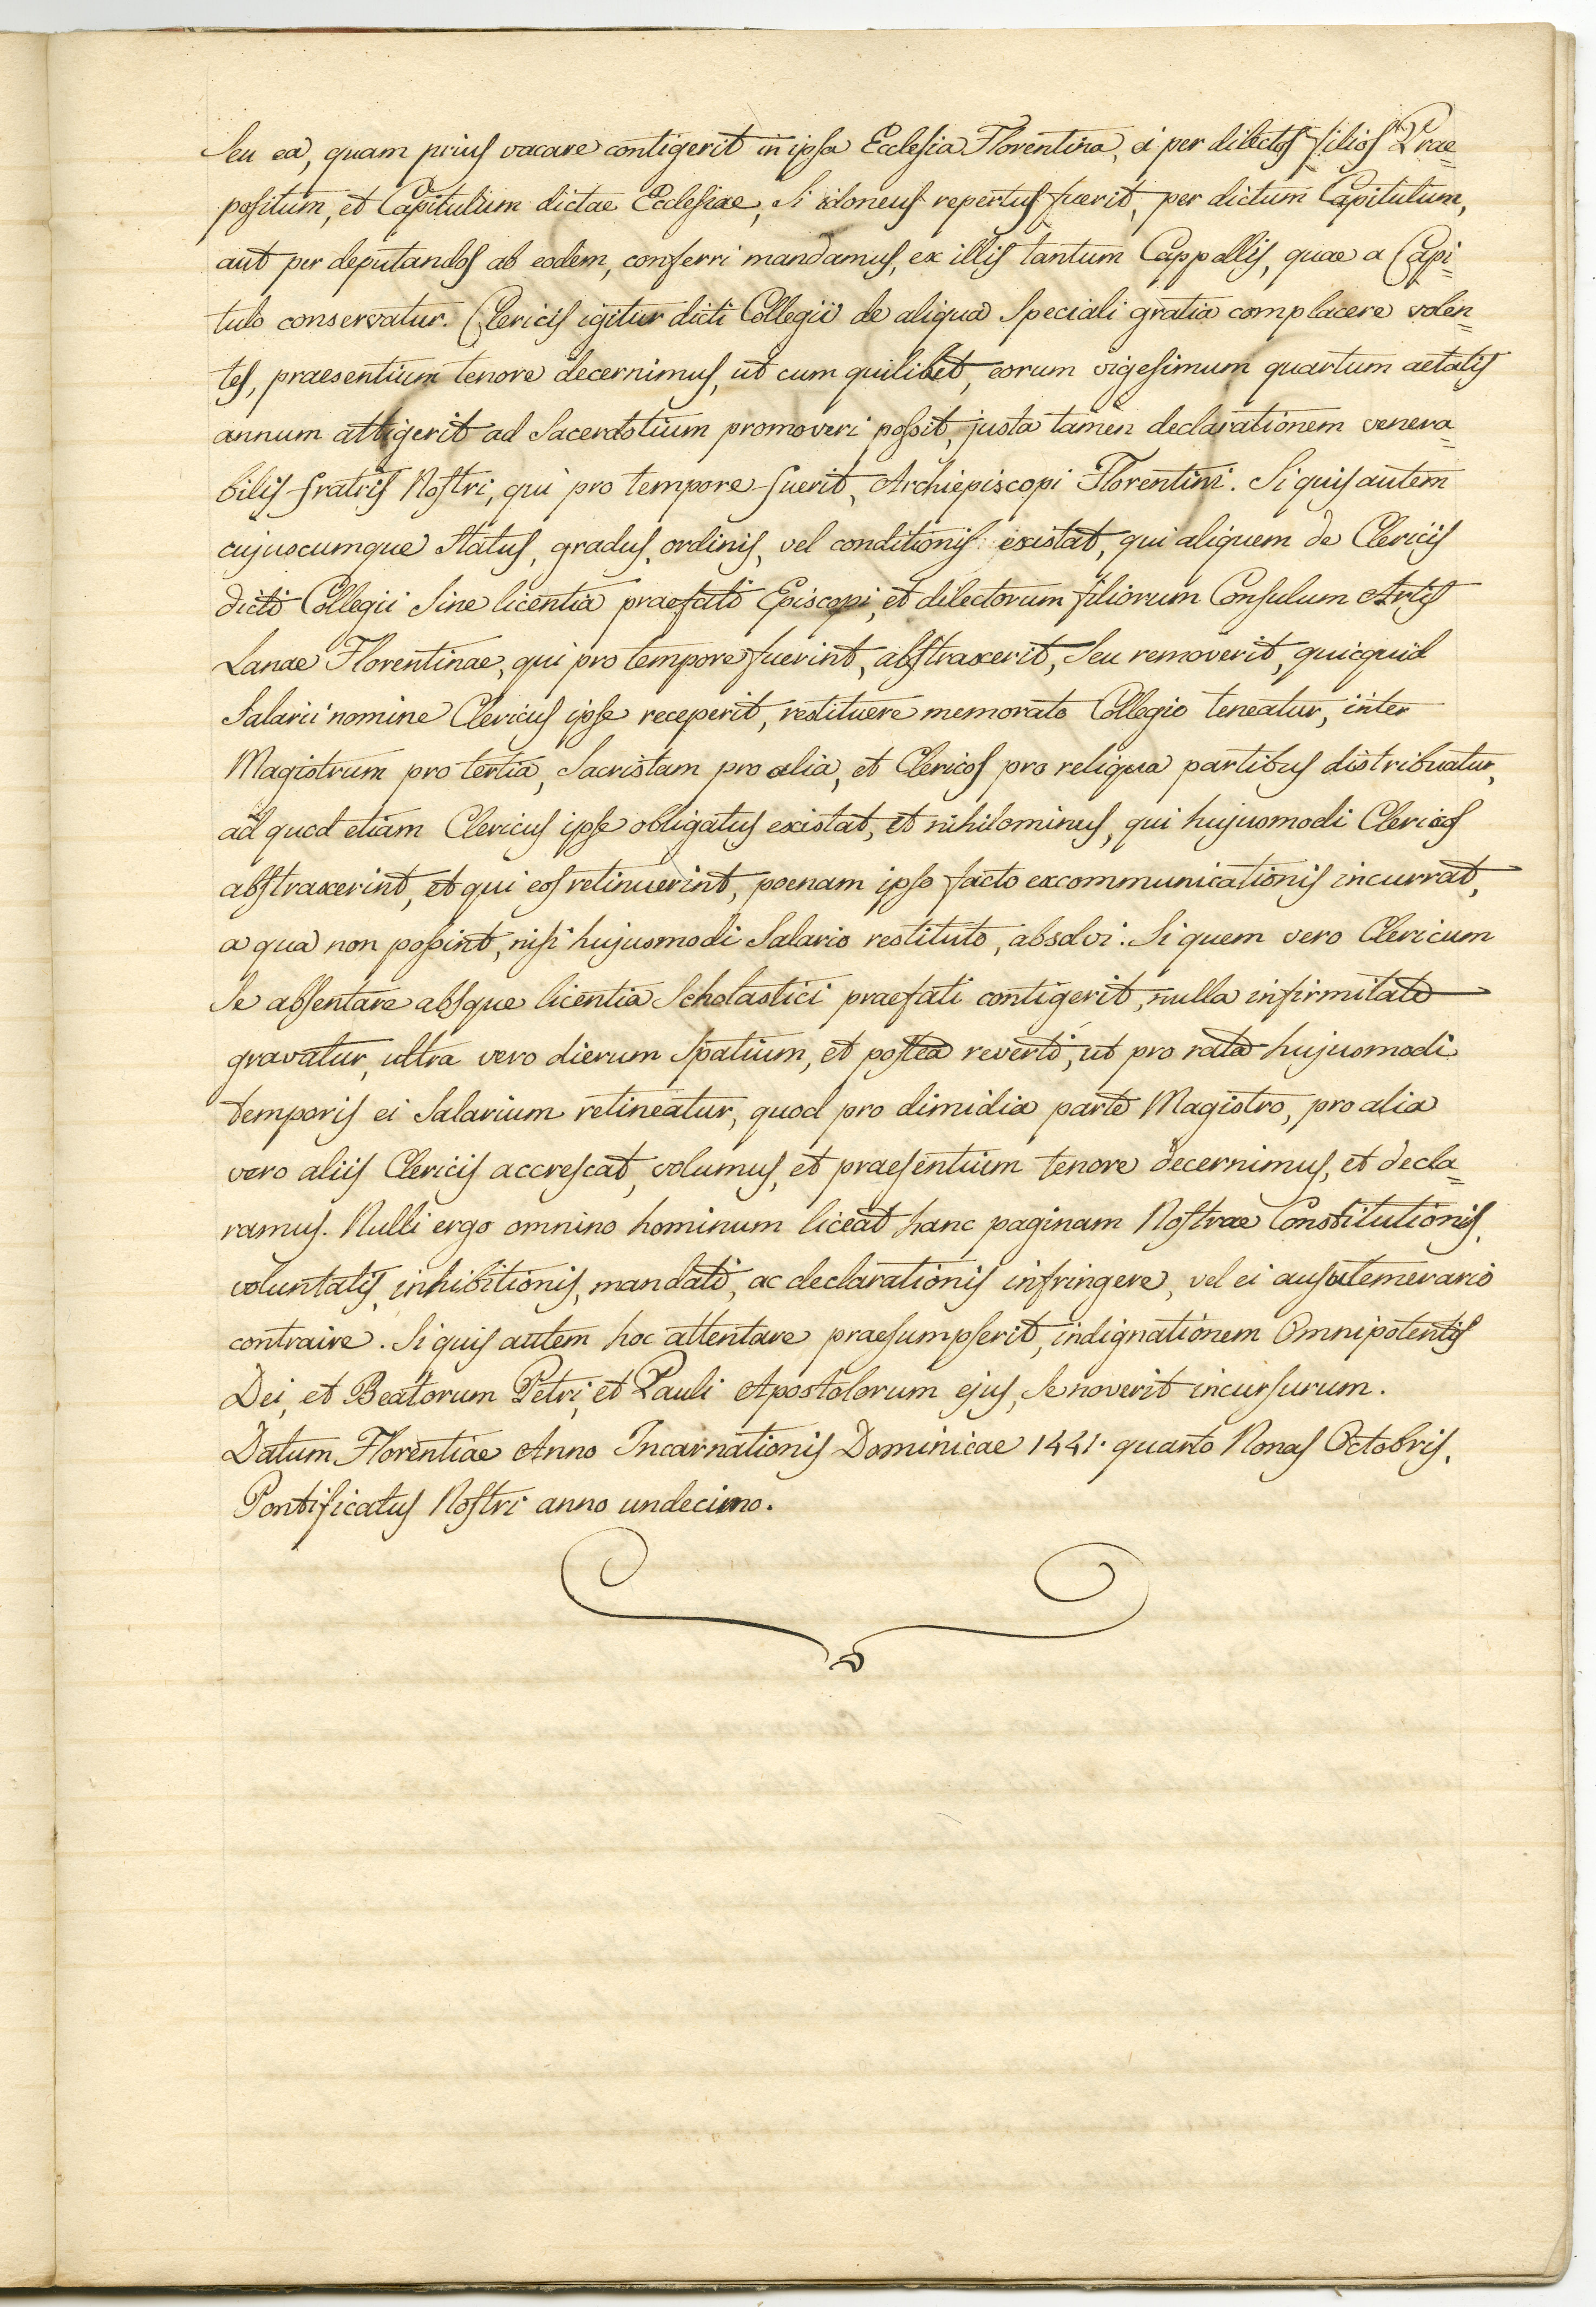 Seu ea, quam prius vacare contigerit in ipsa Ecclesia Florentina, ei per dilectos filios Prae=
positum, et Capitulum dictae Ecclesiae, si idoneus repertus fuerit, per dictum Capitulum,
aut per deputandos ab eodem, conferri mandamus, ex illis tantum Cappellis, quae a Capi=
tulo conservatur. Clericis igitur dicti Collegii de aliqua speciali gratia complacere volen=
tes, praesentium tenore decernimus, ut cum quilibet, eorum vigesimum quartum aetatis
annum attigerit ad Sacerdotium promoveri possit, justa tamen declarationem venera=
bilis fratris Nostri, qui pro tempore fuerit, Archiepiscopi Florentini. Si quis autem
cujuscumque status, gradus, ordinis, vel conditionis existat, qui aliquem de Clericis
dicti Collegii sine licentia praefati Episcopi, et dilectorum filiorum Consulum Artis
Lanae Florentinae, qui pro tempore fuerint, abstraxerit, seu removerit, quicquid
Salarii nomine Clericus ipse receperit, restituere memorato Collegio teneatur, inter
Magistrum pro tertia, Sacristam pro alia, et Clericos pro reliqua partibus distribuatur,
ad quod etiam Clericus ipse obligatus existat, et nihilominus, qui hujusmodi Clericos
abstraxerint, et qui eos retinuerint, poenam ipso facto excommunicationis incurrat,
a qua non possint, nisi hujusmodi Salario restituto, absolvi. Si quem vero Clericum
se absentare absque licentia Scholastici praefati contigerit, nulla infirmitate
gravatur, ultra vero dierum spatium, et postea reverti, ut pro rata hujusmodi
temporis ei Salarium retineatur, quod pro dimidia parte Magistro, pro alia
vero aliis Clericis accrescat, volumus, et praesentium tenore decernimus, et decla=
ramus. Nulli ergo omnino hominum liceat hanc paginam Nostrae Constitutionis,
voluntatis, inhibitionis, mandati, ac declarationis infringere, vel ei ausu temerario
contraire. Si quis autem hoc attentare praesumpserit, indignationem Omnipotentis
Dei, et Beatorum Petri, et Pauli Apostolorum ejus, se noverit incursurum.
Datum Florentiae Anno Incarnationis Dominicae 1441. quarto Nonas Octobris,
Pontificatus Nostri anno undecimo.